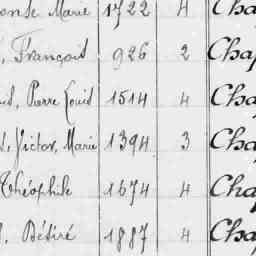 Marie 1722 4 Cha
, François 926 2 Cha
Pierre Louis 1514 4 Cha
, Victor, Marie 1394 3 Cha
Théophile 1674 4 Cha
, Désiré 1887 4 Cha